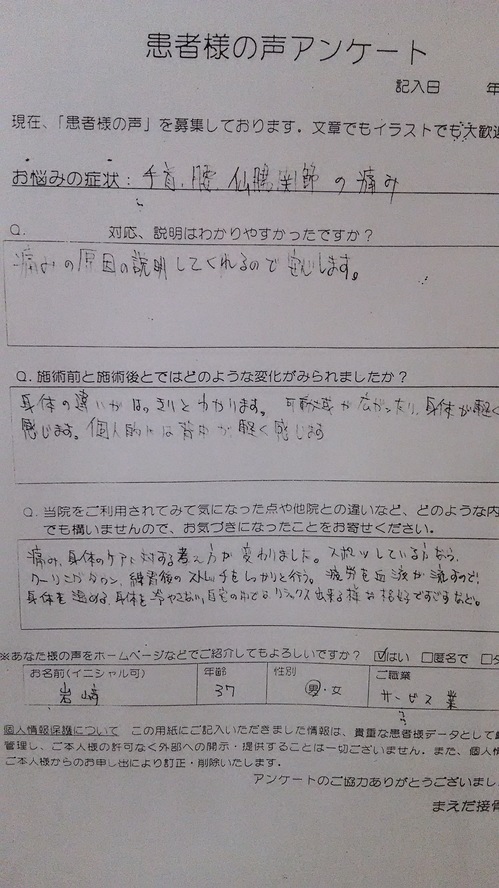 患者様の声アンケート
記入日　　　年
現在、「患者様の声」を募集しております。文章でもイラストでも大歓迎
お悩みの症状：手首、腰、仙腸関節の痛み
Q.　　　　　対応、説明はわかりやすかったですか？
痛みの原因の説明してくれるので安心します。
Q.施術前と施術後とではどのような変化がみられましたか？
身体の違いがはっきりとわかります。可動域が広がったり、身体が軽く
感じます。個人的には背中が軽く感じます
Q.当院をご利用されてみて気になった点や他院との違いなど、どのような内
でも構いませんので、お気づきになったことをお寄せください。
痛み、身体のケアに対する考え方が変わりました。スポーツしている方なら、
クーリングダウン、練習後のストレッチをしっかりと行う。疲労を
身体を温める、身体を冷やさない、自宅の中でも、リラックス出来る様な格好ですごすなど。
※あなた様の声をホームページなどでご紹介してもよろしいですか？ ☑はい □匿名で □
お名前(イニシャル可) 年齢 性別 ご職業
岩﨑 37 男・女 サービス業
個人情報保護について　この用紙にご記入いただきました情報は、貴重な患者様データとして
管理し、ご本人様の許可なく外部への開示・提供することは一切ございません。また、個人情
ご本人様からのお申し出により訂正・削除いたします。
アンケートのご協力ありがとうございまし
まえだ接骨